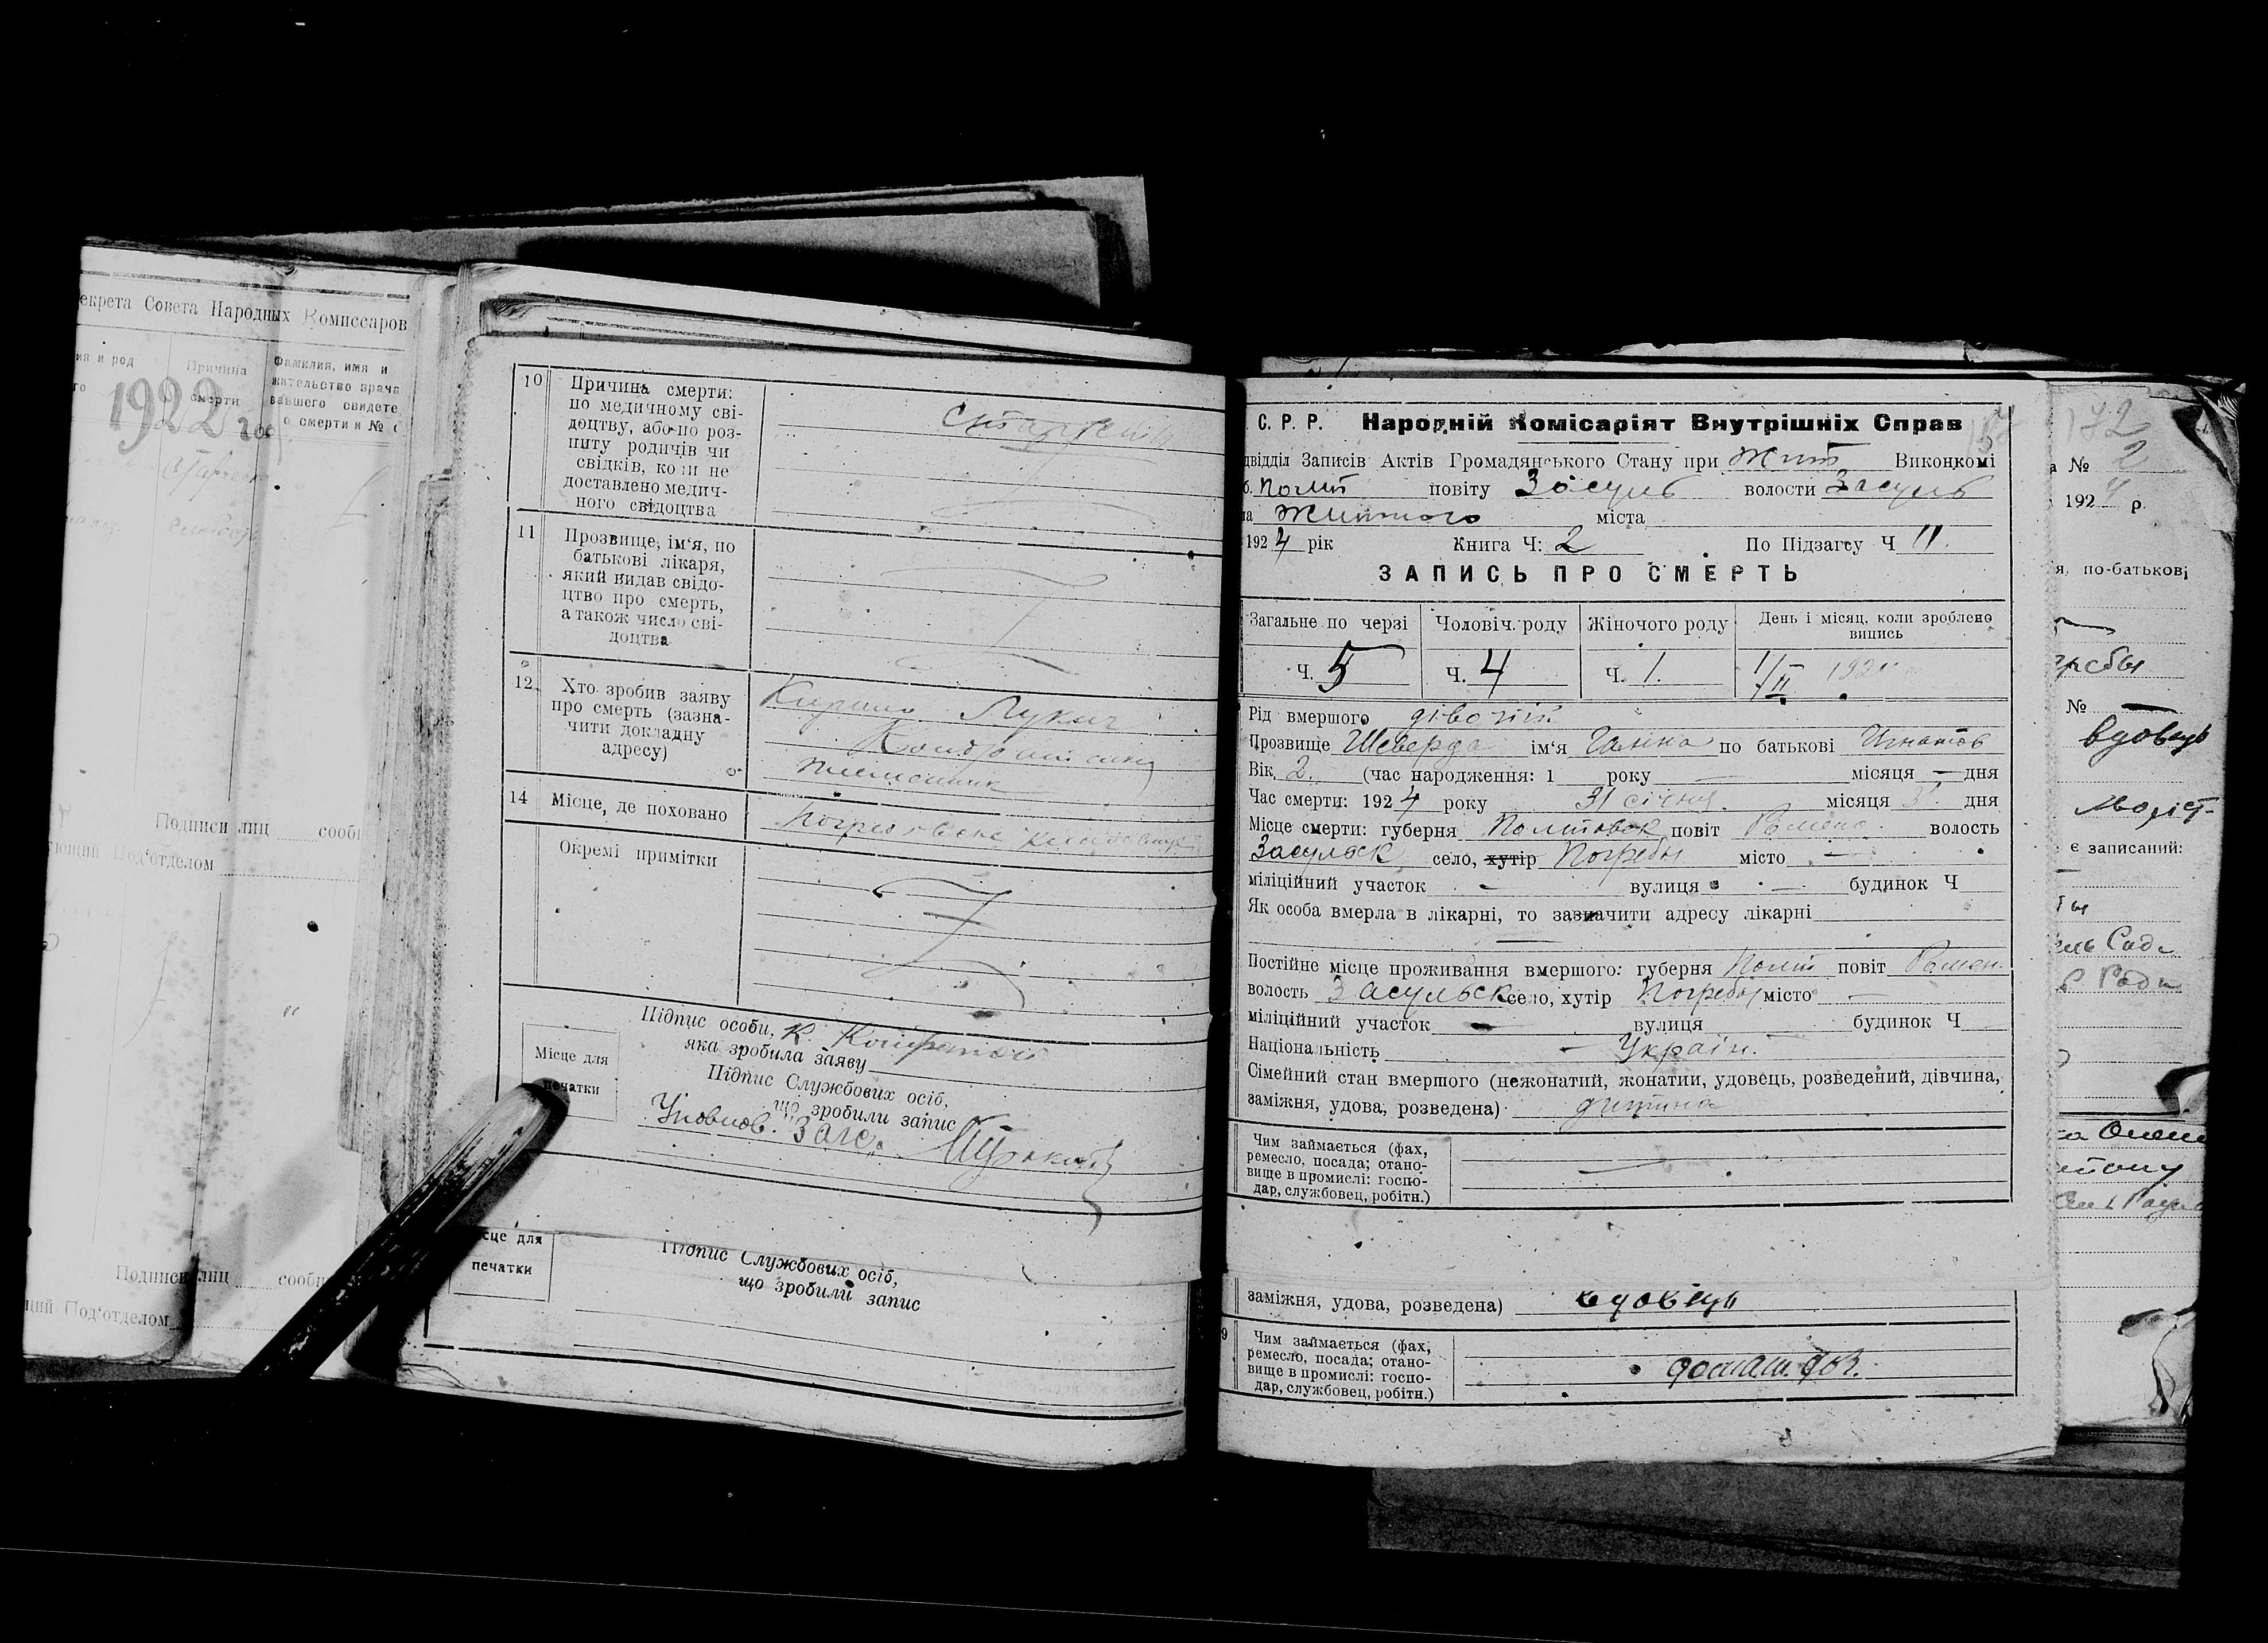 екрета Совета Народных Комиссаров
ия и род
го
Причина
смерти
Фамилия, имя и
жительство врача
вавшего свидете
о смерти и № с
1922 год
Подписи лиц сооб
ющий Под'отделом
Подписи лиц сооби
щий Под'отделом
10
Причина смерти:
по медичному сві-
доцтву, або по роз-
питу родичів чи
свідків, коли не
доставлено медич-
ного свідоцтва
11
Прозвище, ім'я, по
батькові лікаря,
який видав свідо-
цтво про смерть,
а також число сві-
доцтва
12
Хто зробив заяву
про смерть (зазна-
чити докладну
адресу)
Кирило Лукич
14
Місце, де поховано
Окремі примітки
Підпис особи,
яка зробила заяву
К.
Місце для
печатки
Підпис Службових осіб,
що зробили запис
Уповнов. Загс.
сце для
печатки
Підпис Службових осіб,
що зробили запис
С. Р. Р. Народній Комісаріят Внутрішніх Справ
двідділ Записів Актів Громадянського Стану при Жит Виконкомі
б. Полт повіту Засуль волости Засуль
ла Житного міста
1924 рік Книга Ч: 2 По Підзагсу Ч 11.
ЗАПИСЬ ПРО СМЕРТЬ
Загальне по черзі Чоловіч. роду Жіночого роду День і місяц, коли зроблено
випись
Ч. 5 Ч. 4 Ч. 1. 1/II
Рід вмершого дівочий
Прозвище Шеверда ім'я Галина по батькові Игнатов
Вік 2. (час народження: 1 року — місяця — дня
Час смерти: 1924 року 31 січня. місяця 31 дня
Місце смерти: губерня Полтавск повіт Ромено волость
Засульск село, хутір Погребы місто —
міліційний участок — вулиця — будинок Ч
Як особа вмерла в лікарні, то зазначити адресу лікарні
—
Постійне місце проживання вмершого: губерня Полт повіт Ромен.
волость Засульск село, хутір Погребы місто —
міліційний участок — вулиця будинок Ч
Національність — Україн.
Сімейний стан вмершого (нежонатий, жонатии, удовець, розведений, дівчина,
заміжня, удова, розведена) дитина
Чим займається (фах,
ремесло, посада; отано-
вище в промислі: госпо-
дар, службовец, робітн.)
—
заміжня, удова, розведена) вдовець
9
Чим займається (фах,
ремесло, посада; отано-
вище в промислі: госпо-
дар, службовец, робітн.)
172
а № 2
1924 р.
я, по-батькові
№ —
вдовець
є записаний: